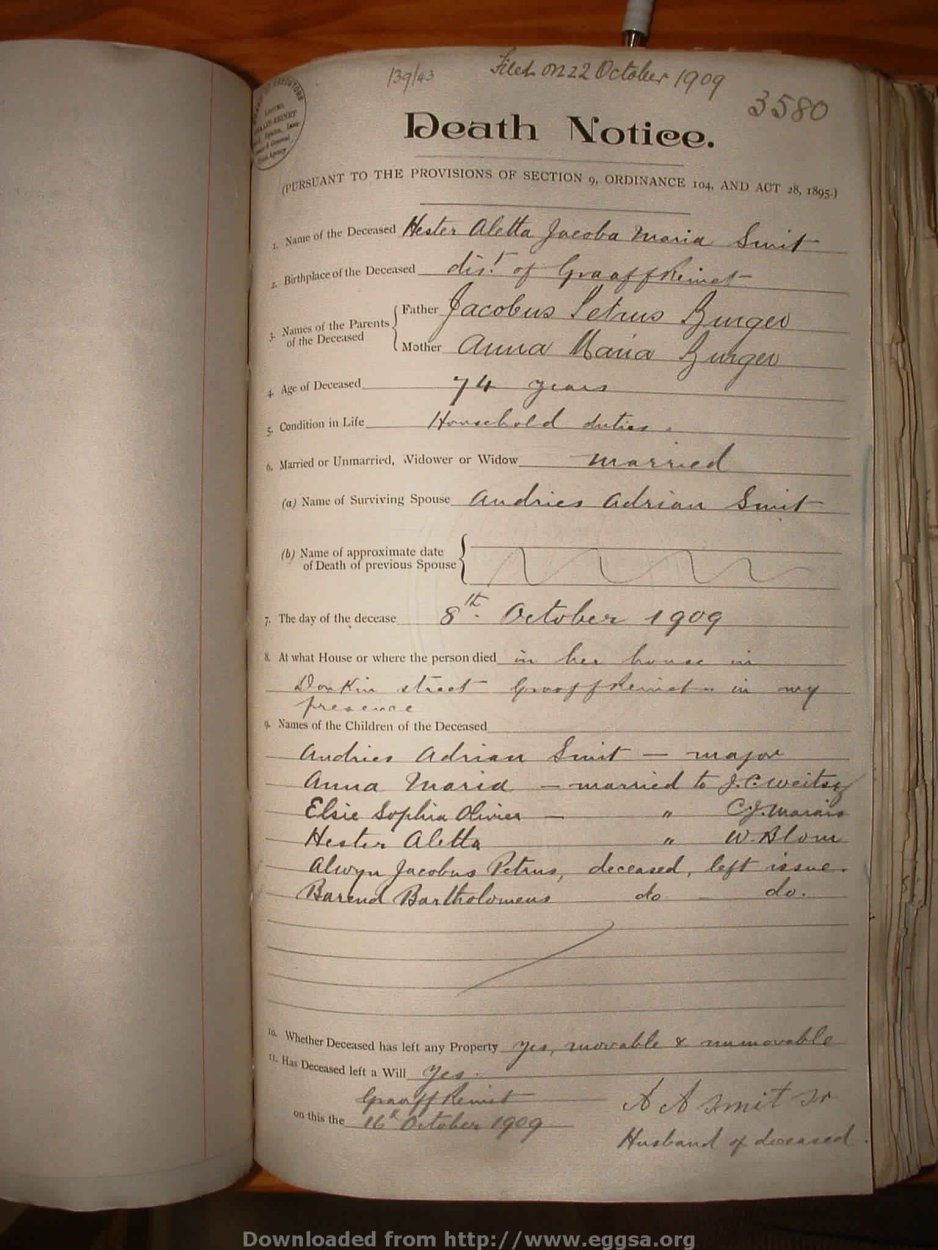 139/43
Filed on 22 October 1909
3580
Death Notice.
(PURSUANT TO THE PROVISIONS OF SECTION 9, ORDINANCE 104, AND ACT 28, 1895.)
1. Name of the Deceased Hester Aletta Jacoba Maria Smit
2. Birthplace of the Deceased dist. of Graaff Reinet
3. Names of the Parents of the Deceased { Father Jacobus Petrus Burger
Mother Anna Maria Burger
4. Age of Deceased 74 years
5. Condition in Life Household duties.
6. Married or Unmarried, Widower or Widow married
(a) Name of Surviving Spouse Andries Adrian Smit
(b) Name of approximate date
of Death of previous Spouse
7. The day of the decease 8th October 1909
8. At what House or where the person died in her house in
Donkin street Graaff Reinet in my
presence
9. Names of the Children of the Deceased
Andries Adrian Smit — major
Anna Maria — married to J.C. Weitsz
Elsie Sophia Olivier — " C.J. Marais
Hester Aletta " W. Blom
Alwyn Jacobus Petrus, deceased, left issue.
Barend Bartholomeus do — do.
10. Whether Deceased has left any Property yes, movable & immovable
11. Has Deceased left a Will yes.
Graaff Reinet
on this the 16th October 1909
A A Smit Sr
Husband of deceased.
Downloaded from http://www.eggsa.org